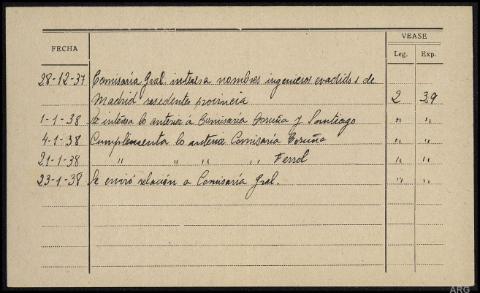 VEASE
FECHA Leg. Exp.
28-12-37 Comisaría Gral. interesa nombres ingenieros evadidos de
Madrid residentes provincia 2 39
1-1-38 Se interesa lo anterior a Comisaría Coruña y Santiago " "
4-1-38 Cumplimenta lo anterior Comisaría Coruña " "
21-1-38 " " " " Ferrol " "
23-1-38 Se envió relación a Comisaría Gral. " "
ARG